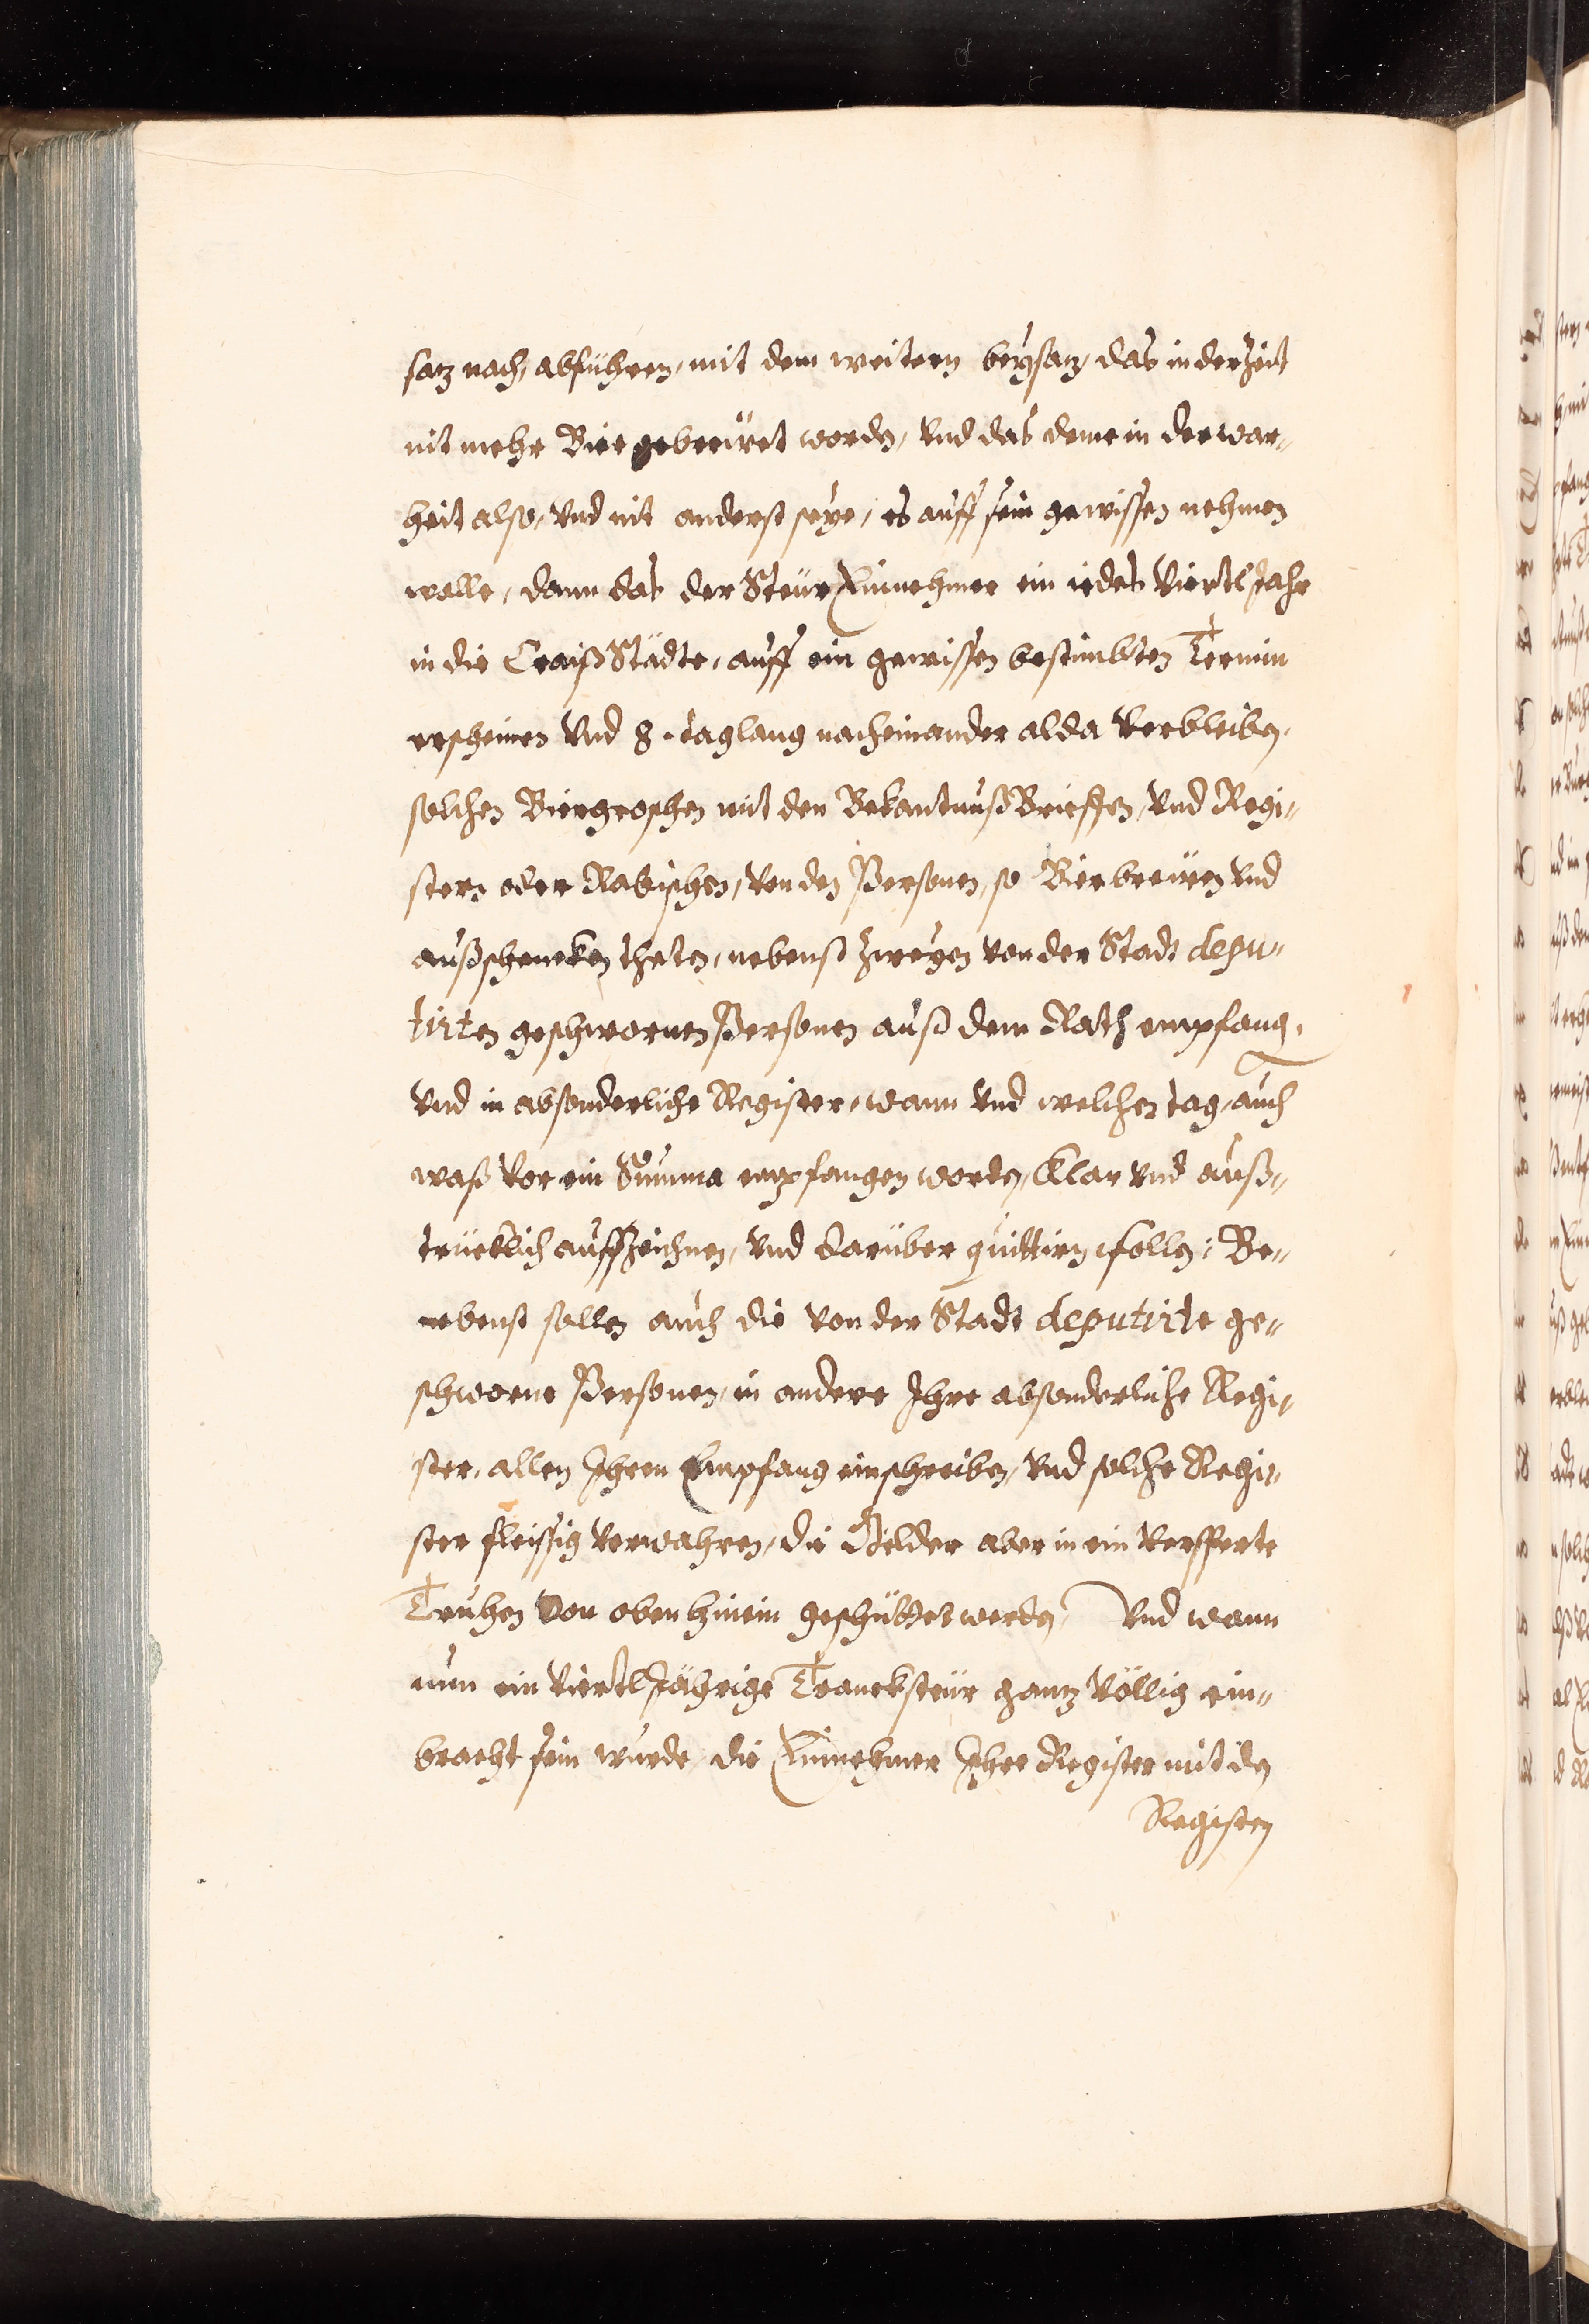 satz nach, abführen, mit dem weitern beÿsatz, das in der Zeit
nit mehr Bier gebreüet worden, vnd das deme in der war„
heit also, vnd nit anderst seÿe, es auff sein gewissen nehmen
wolle, dann das der SteürEinnehmer ein iedes ViertlJahr
in die CraißStädte, auff ein gewissen bestimbten Termin
erscheinen vnd 8. taglang nacheinander alda verbleiben,
solchen Biergroschen mit den BekantnußBrieffen, vnd Regi„
stern oder Rabischen, von den Personen, so Bierbreüen vnd
außschencken theten, nebenst zweÿen von der Stadt depu„
tirten geschwornen Personen auß dem Rath empfang.
vnd in absonderliche Register, wann vnd welchen tag, auch
waß vor ein Summa empfangen worden, klar vnd auß„
trücklich auffzeichnen, vnd darüber quittirn sollen: Be„
nebenst sollen auch die von der Stadt deputirte ge„
schworne Personen, in andere Ihre absonderliche Regi„
ster, allen Ihren Empfang einschreiben, vnd solche Regi„
ster fleissig verwahren, die Gelder aber in ein versperte
Truhen von oben hinein geschüttet werden, Vnd wann
nun ein ViertlJährige Trancksteür gantz völlig ein„
bracht sein wurde, die Einnehmer Ihre Register mit den
Registern